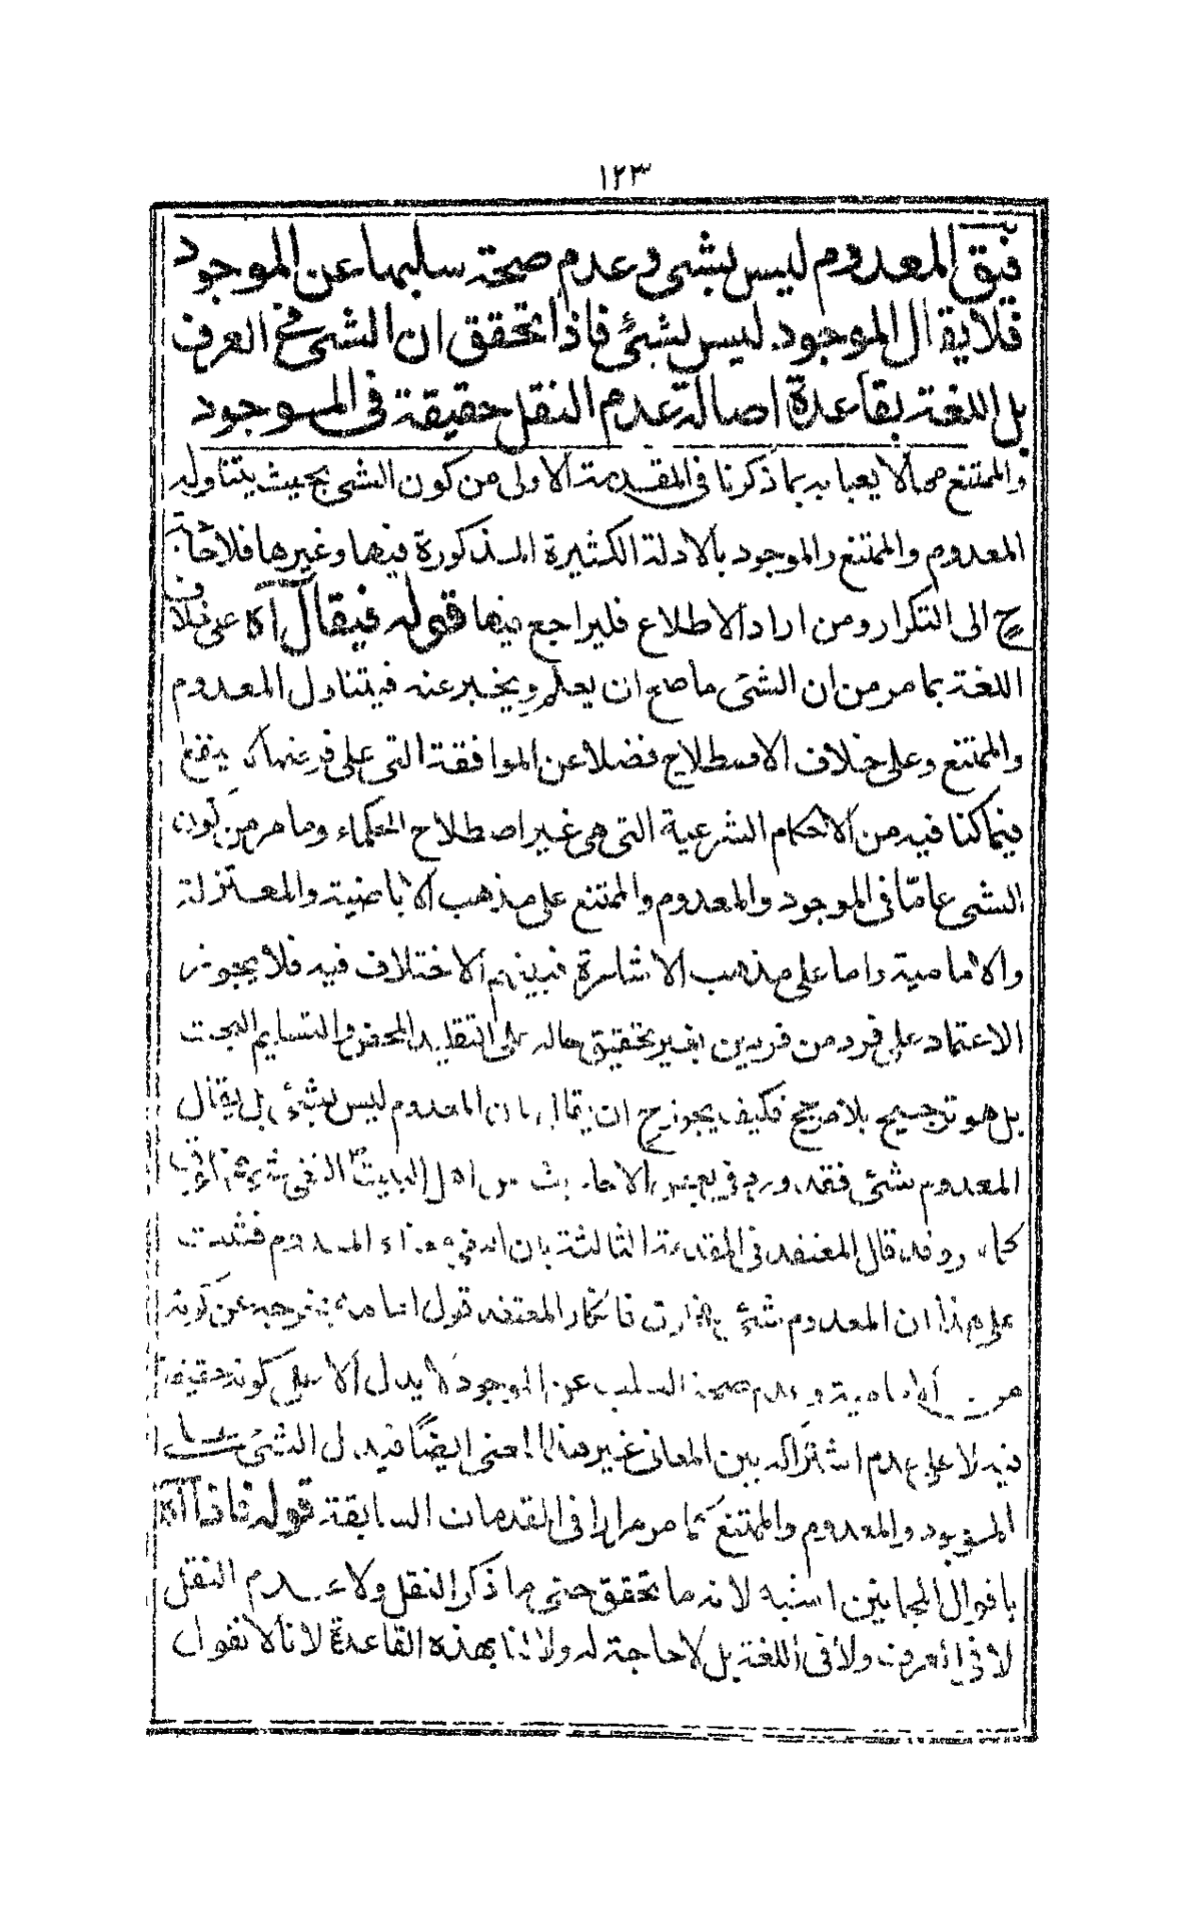 ١٢٣
فيق المعدوم ليس بشئ وعدم صحة سلبها عن الموجود
فلا يقال الموجود ليس بشئ فاذا تحقق ان الشئ في العرف
بل اللغة بقاعدة اصالة عدم النقل حقيقة في الموجود
والممتنع محالا يعبا به بما ذكرنا في المقدمة الاولى من كون الشئ بحيث يتناوله
المعدوم والممتنع والموجود بالادلة الكثيرة المذكورة فيها وغيرها فلا حاجة
ح الى التكرار ومن اراد الاطلاع فليراجع فيها قوله فيقال آه على خلاف
اللغة بما مر من ان الشئ ما صح ان يعلم ويخبر عنه فيتناول المعدوم
والممتنع وعلى خلاف الاصطلاح فضلا عن الموافقة التي على فرضها لا ينفع
فيما كنا فيه من الاحكام الشرعية التي هي غير اصطلاح الحكماء وما مر من كون
الشئ عاما في الموجود والمعدوم والممتنع على مذهب الاباضية والمعتزلة
والامامية واما على مذهب الاشاعرة فبينهم الاختلاف فيه فلا يجوز
الاعتماد على فرد من فردين بغير تحقيق حاله على التقليد المحض والتسليم البحت
بل هو ترجيح بلا مرجح فكيف يجوز ح ان يقال بان المعدوم ليس بشئ بل يقال
المعدوم شئ فقد ورد في بعض الاحاديث من اهل البيت النفي شئ
قال المعتقد في المقدمة الثالثة بان المعدوم فثبت
على هذا ان المعدوم شئ فانكار المعتقد قول عن كونه
من الامامية وعدم صحة السلب عن الموجود لا يدل الا على كونه حقيقة
فيه لا على عدم اشتراكه بين المعاني غير هذا المعنى ايضا فيدل الشئ على
الموجود والمعدوم والممتنع كما مر مرارا في المقدمات السابقة قوله فاذا آه
باقوال المجانين اشبه لانه ما تحقق حتى ما ذكر النقل ولا عدم النقل
لا في العرف ولا في اللغة بل لا حاجة له ولا لنا بهذه القاعدة لانا لا نقول